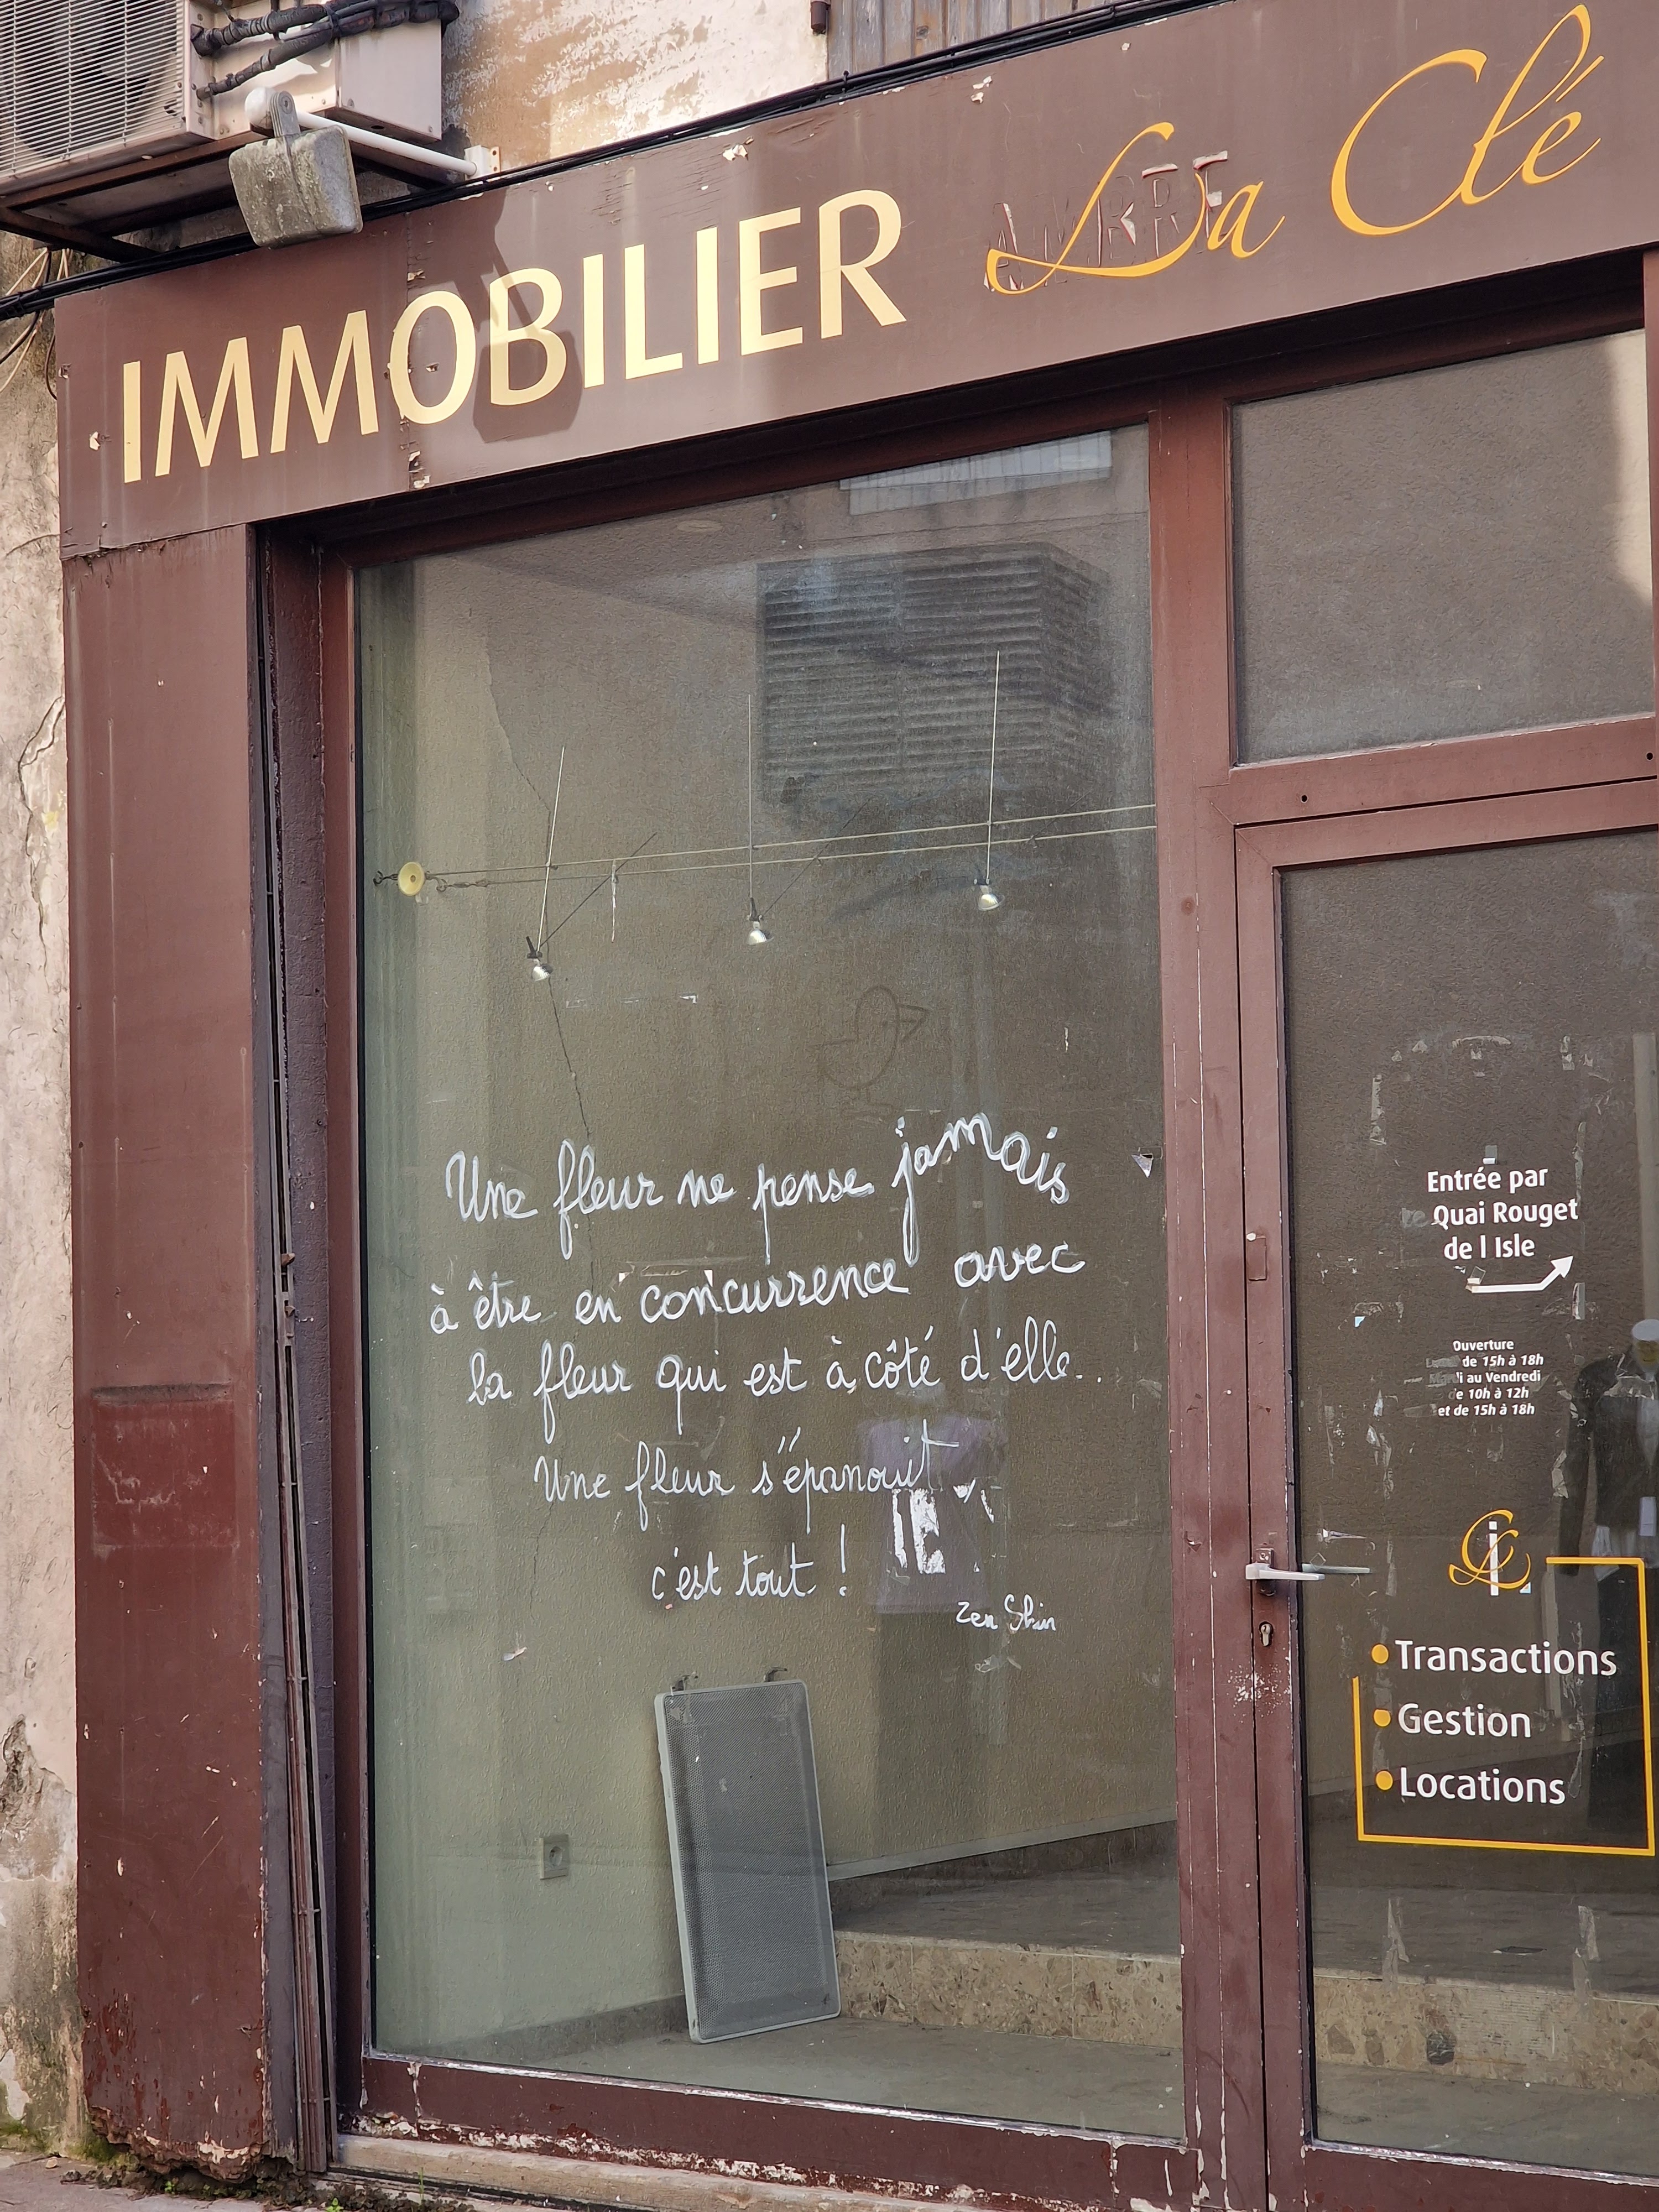 IMMOBILIER La Clé
Une fleur ne pense jamais
à être en concurrence avec
la fleur qui est à côté d'elle..
Une fleur s'épanouit,
c'est tout !
Zen Shin
Entrée par
Quai Rouget
de l Isle
Ouverture
de 15h à 18h
au Vendredi
de 10h à 12h
et de 15h à 18h
Transactions
Gestion
Locations